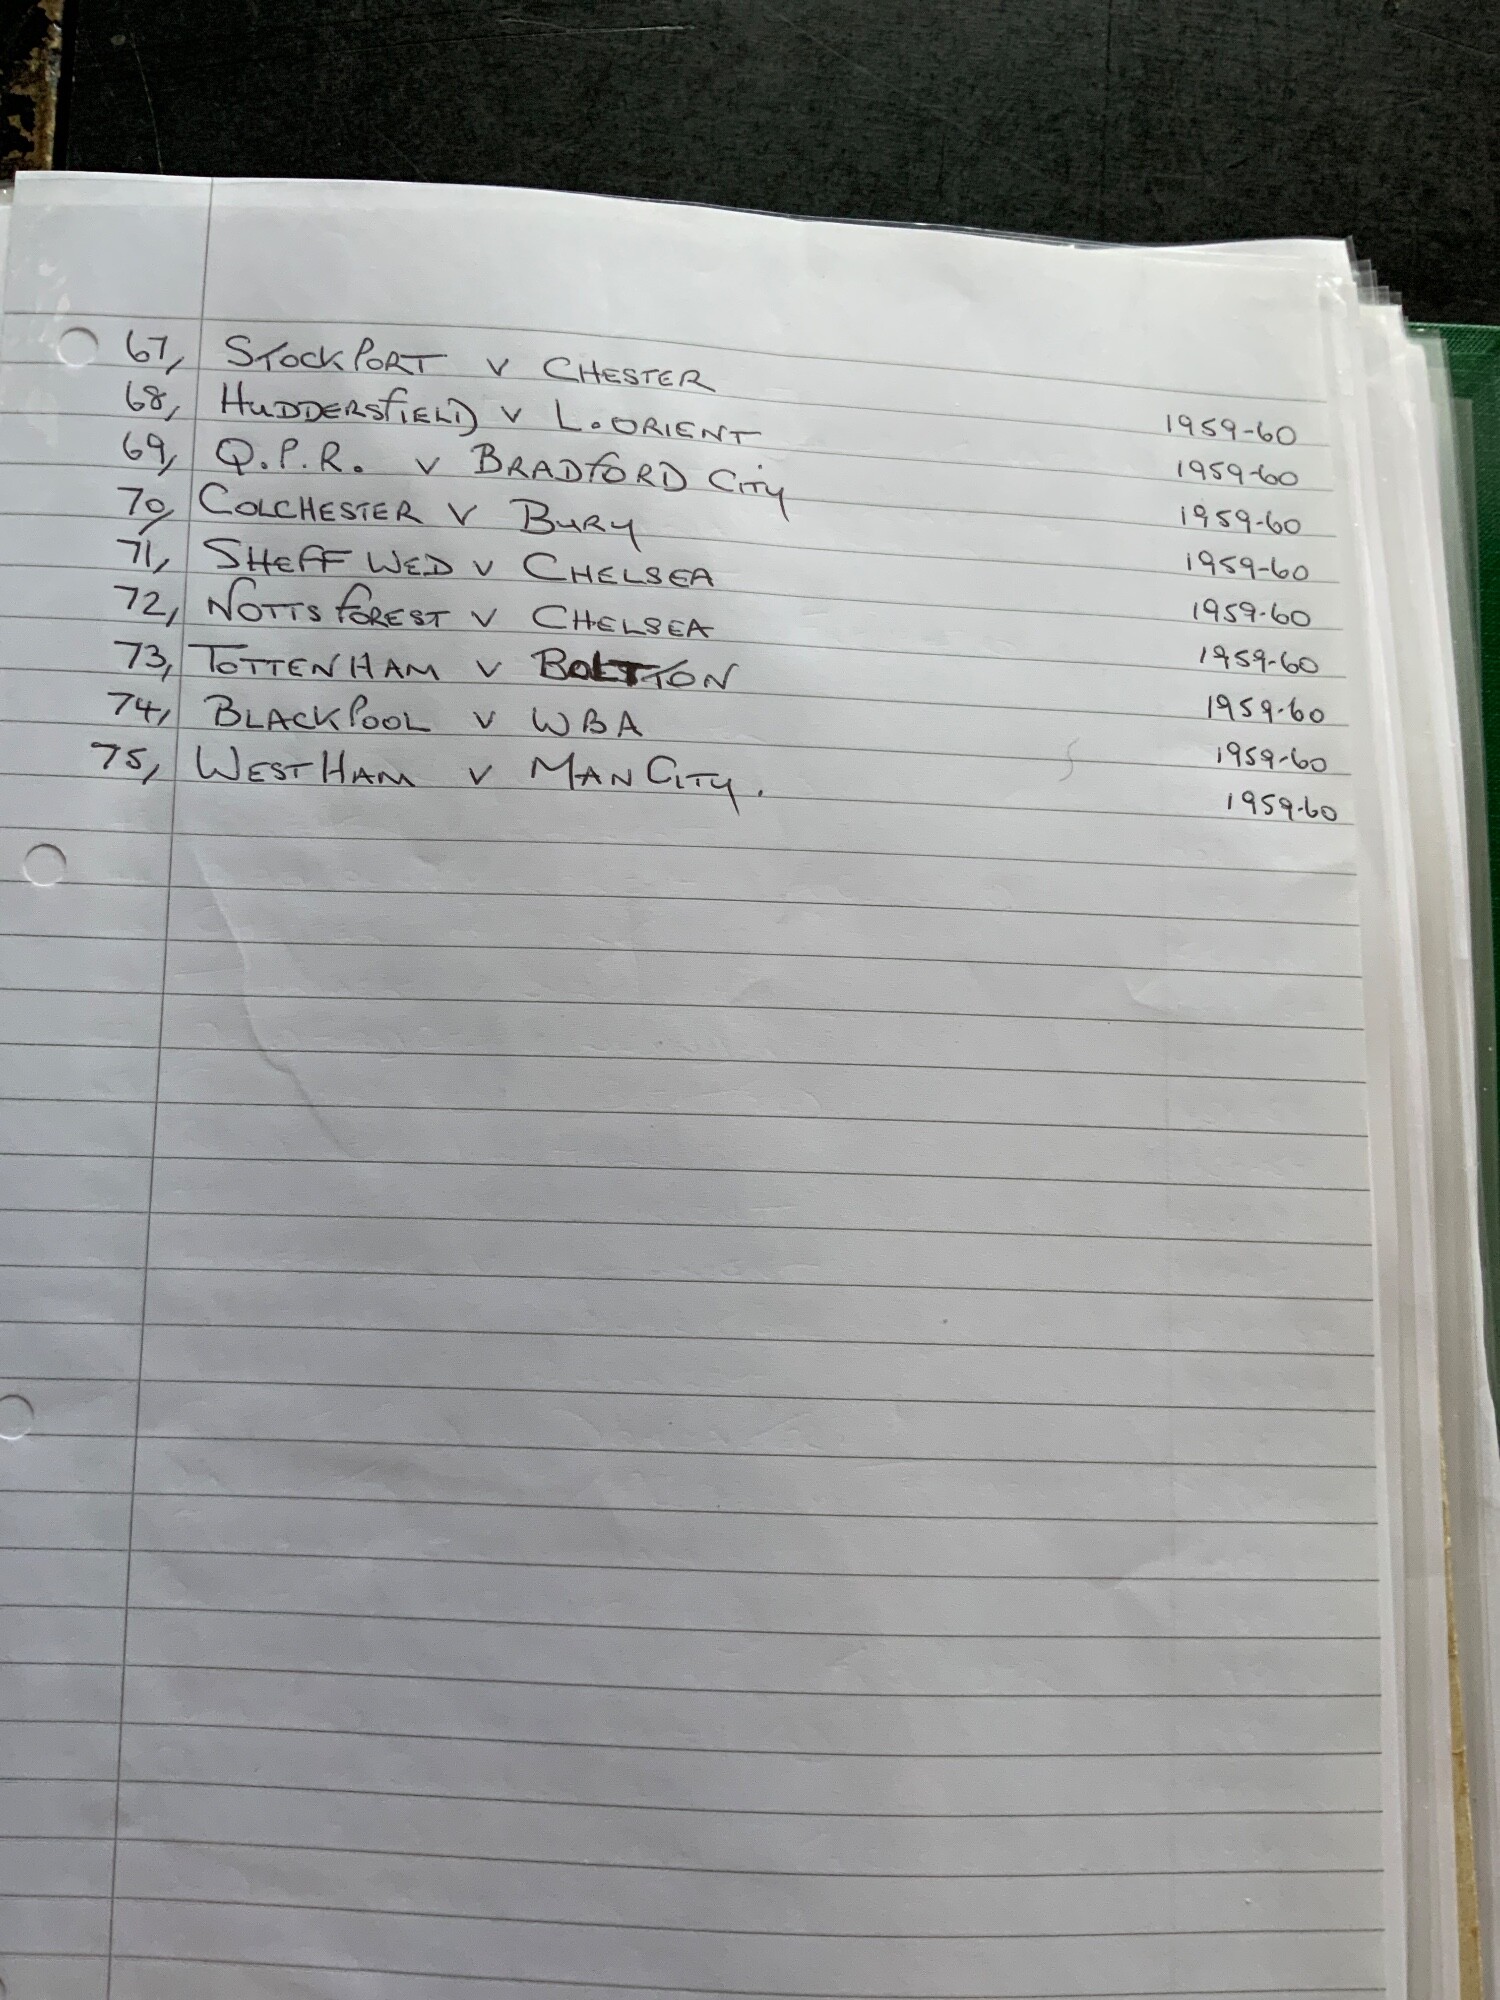 67, STOCKPORT v CHESTER 1959-60
68, HUDDERSFIELD v L.ORIENT 1959-60
69, Q.P.R. v BRADFORD CITY 1959-60
70, COLCHESTER v BURY 1959-60
71, SHEFF WED v CHELSEA 1959-60
72, NOTTS FOREST v CHELSEA 1959-60
73, TOTTENHAM v BOLTON 1959-60
74, BLACKPOOL v WBA 1959-60
75, WEST HAM v MAN CITY. 1959-60